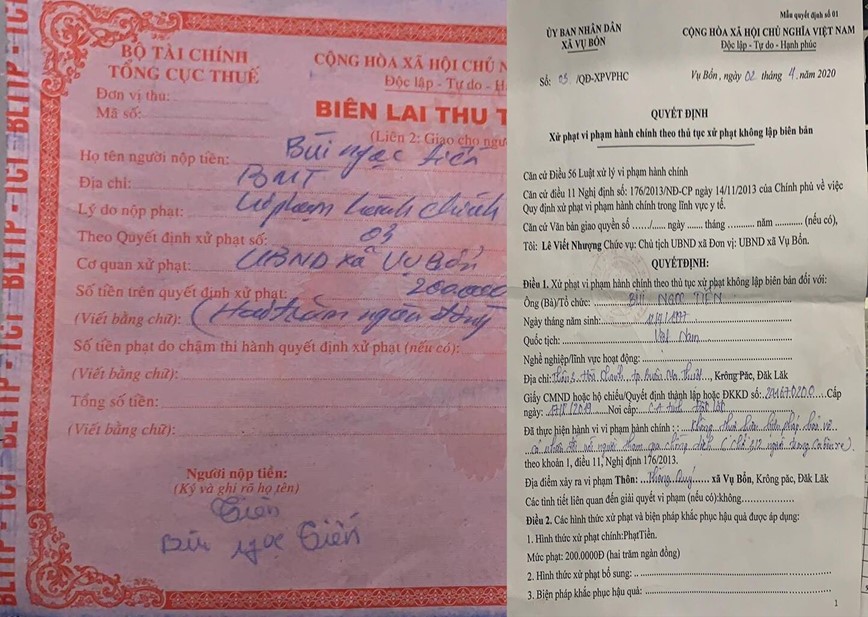 BLTTP - TCT BLTTP - TCT BLTTP - TCT
BỘ TÀI CHÍNH
TỔNG CỤC THUẾ
Đơn vị thu:
Mã số:
CỘNG HÒA XÃ HỘI CHỦ N
Độc lập - Tự do - Hạ
BIÊN LAI THU T
(Liên 2: Giao cho ngư
Họ tên người nộp tiền: Bùi Ngọc Tiến
Địa chỉ: BMT
Lý do nộp phạt: Vi phạm hành chính
Theo Quyết định xử phạt số: 03
Cơ quan xử phạt: UBND xã Vụ Bổn
Số tiền trên quyết định xử phạt: 200.000
(Viết bằng chữ): (Hai trăm ngàn đồng
Số tiền phạt do chậm thi hành quyết định xử phạt (nếu có):
(Viết bằng chữ):
Tổng số tiền:
(Viết bằng chữ):
Người nộp tiền:
(Ký và ghi rõ họ tên)
Tiến
Bùi Ngọc Tiến
Mẫu quyết định số 01
ỦY BAN NHÂN DÂN
XÃ VỤ BỔN
CỘNG HÒA XÃ HỘI CHỦ NGHĨA VIỆT NAM
Độc lập - Tự do - Hạnh phúc
Số: 03 /QĐ-XPVPHC
Vụ Bổn, ngày 02 tháng 4 năm 2020
QUYẾT ĐỊNH
Xử phạt vi phạm hành chính theo thủ tục xử phạt không lập biên bản
Căn cứ Điều 56 Luật xử lý vi phạm hành chính
Căn cứ điều 11 Nghị định số: 176/2013/NĐ-CP ngày 14/11/2013 của Chính phủ về việc
Quy định xử phạt vi phạm hành chính trong lĩnh vực y tế.
Căn cứ Văn bản giao quyền số ...../...... ngày ...... tháng ......... năm .......... (nếu có),
Tôi: Lê Viết Nhượng Chức vụ: Chủ tịch UBND xã Đơn vị: UBND xã Vụ Bổn.
QUYẾTĐỊNH:
Điều 1. Xử phạt vi phạm hành chính theo thủ tục xử phạt không lập biên bản đối với:
Ông (Bà)/Tổ chức: BÙI NGỌC TIẾN
Ngày tháng năm sinh: 1997
Quốc tịch: Việt Nam
Nghề nghiệp/lĩnh vực hoạt động:
Địa chỉ: tp. Buôn Ma Thuột, Krông Pắc, Đăk Lăk
Giấy CMND hoặc hộ chiếu/Quyết định thành lập hoặc ĐKKD số: Cấp
ngày: 2019 Nơi cấp: CA tỉnh Đắk Lắk
Đã thực hiện hành vi vi phạm hành chính : : Không thực hiện biện pháp bảo vệ
cá nhân đối với người tham gia chống dịch
theo khoản 1, điều 11, Nghị định 176/2013.
Địa điểm xảy ra vi phạm Thôn: xã Vụ Bổn, Krông pắc, Đăk Lăk
Các tình tiết liên quan đến giải quyết vi phạm (nếu có):không
Điều 2. Các hình thức xử phạt và biện pháp khắc phục hậu quả được áp dụng:
1. Hình thức xử phạt chính:PhạtTiền.
Mức phạt: 200.0000Đ (hai trăm ngàn đồng)
2. Hình thức xử phạt bổ sung:
3. Biện pháp khắc phục hậu quả:
1